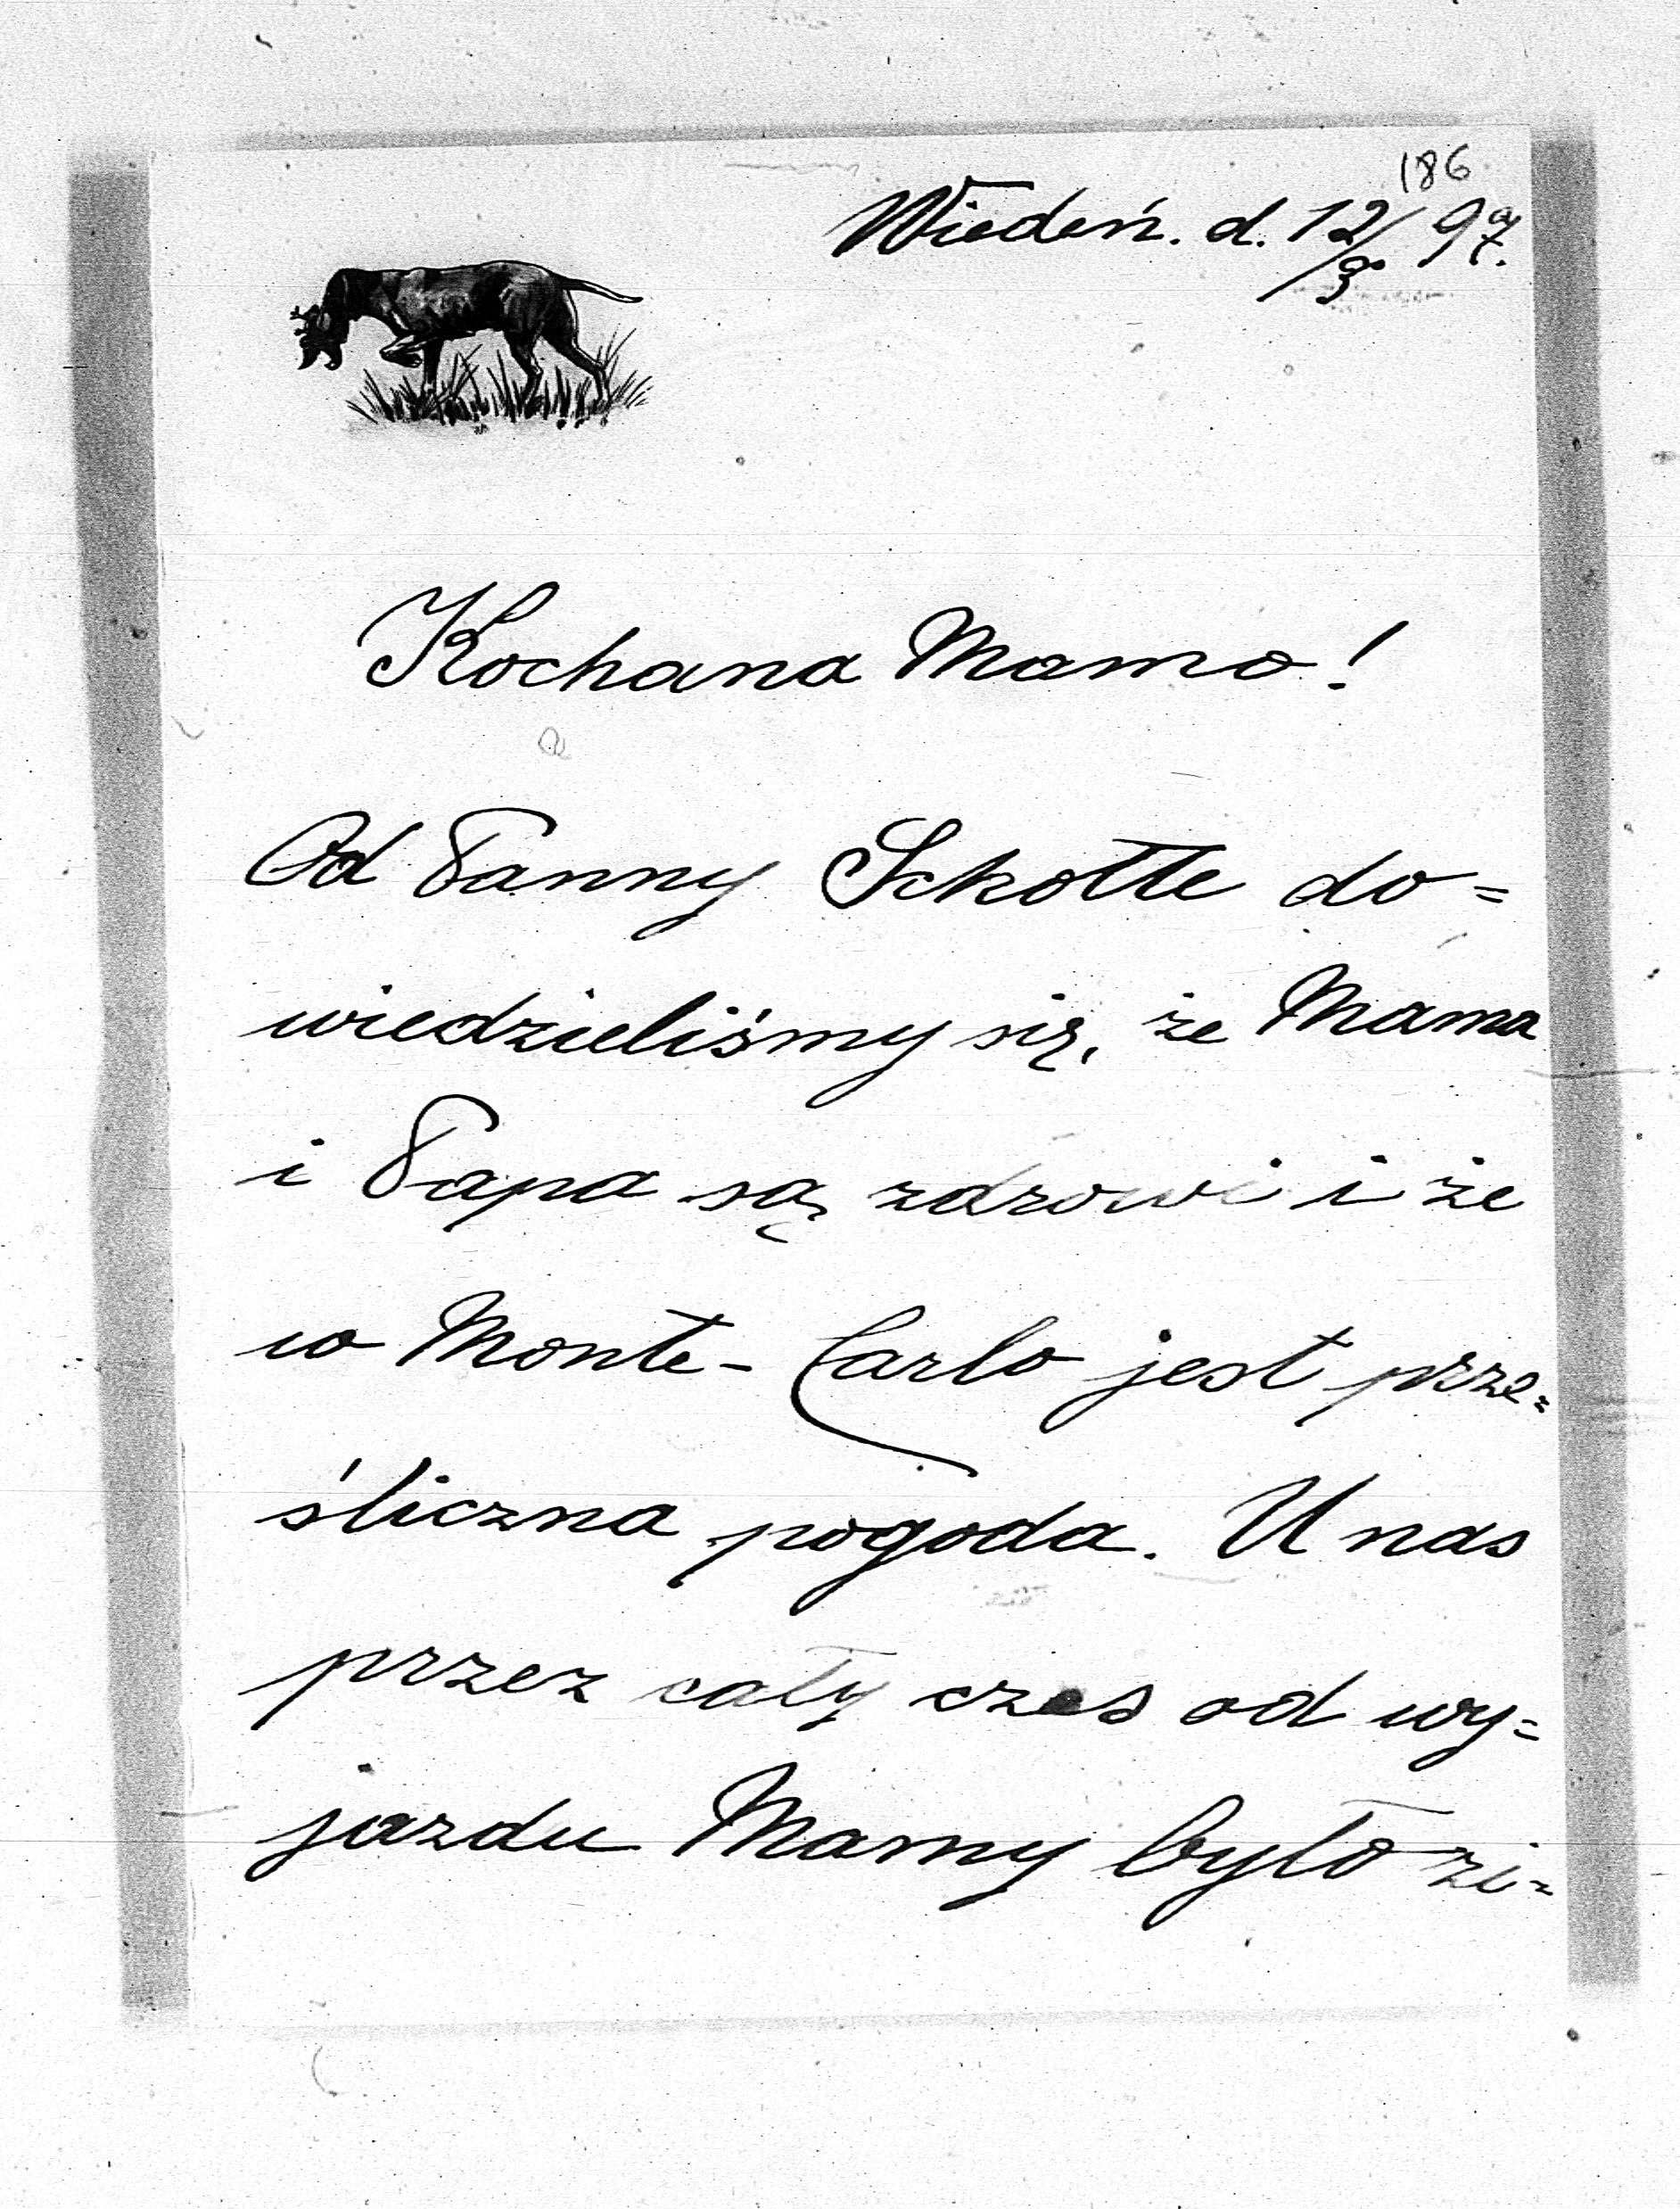 186
Wiedeń. d. 12/3 97.
Kochana Mamo!
Od Panny Schotte do=
wiedzieliśmy się, że Mama
i Papa są zdrowi i że
w Monte-Carlo jest prze=
śliczna pogoda. U nas
przez cały czas od wy=
jazdu Mamy było zi=